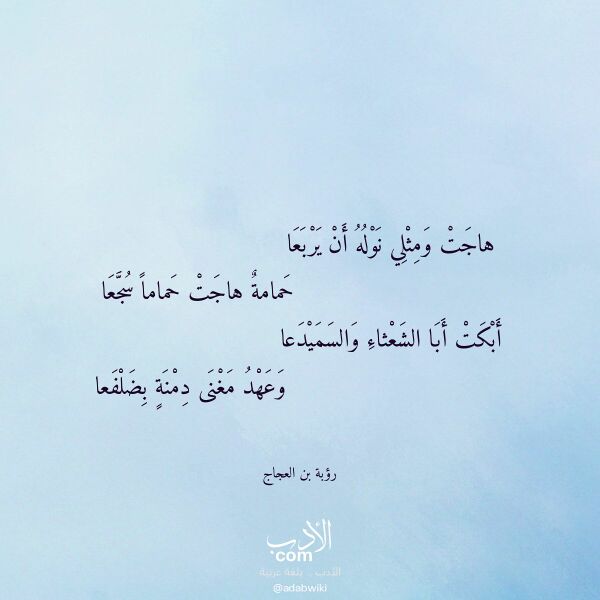 هاجَتْ وَمِثْلِي نَوْلُهُ أَنْ يَرْبَعَا
حَمامةٌ هاجَتْ حَماماً سُجَّعَا
أَبْكَتْ أَبَا الشَعْثاءِ وَالسَمَيْدَعا
وَعَهْدُ مَغْنَى دِمْنَةٍ بِضَلْفَعا
رؤبة بن العجاج
الأدب
com
الأدب .. بلغة عربية
@adabwiki